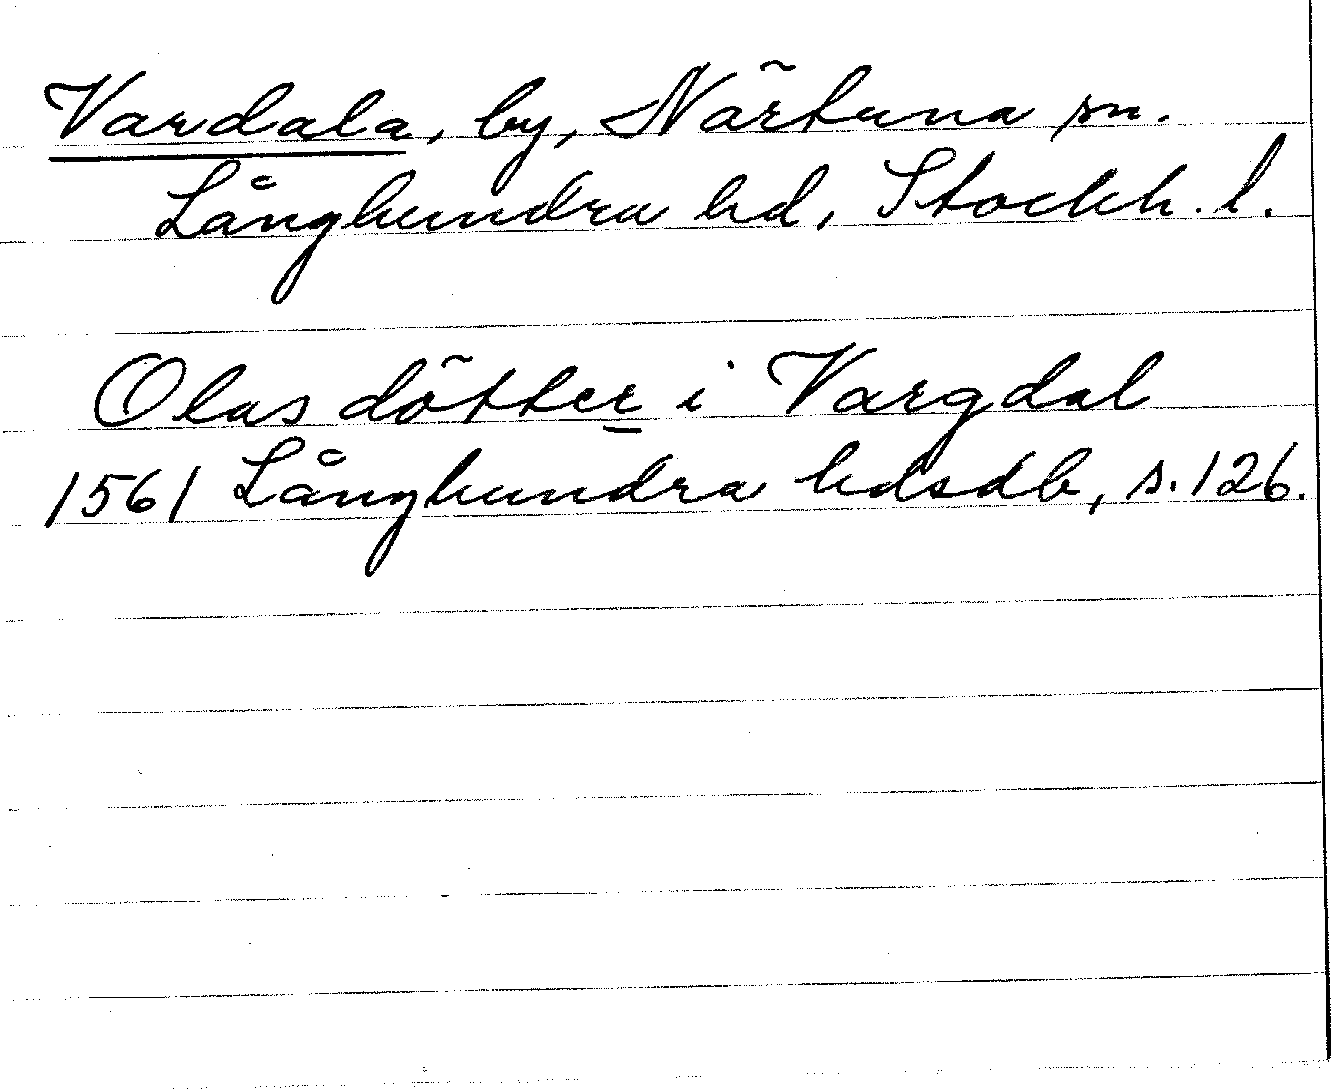 Vardala, by, Närtuna sn.
Långhundra hd, Stockh. l.
Olas dötter i Vargdal
1561 Långhundra hdsdb, s. 126.